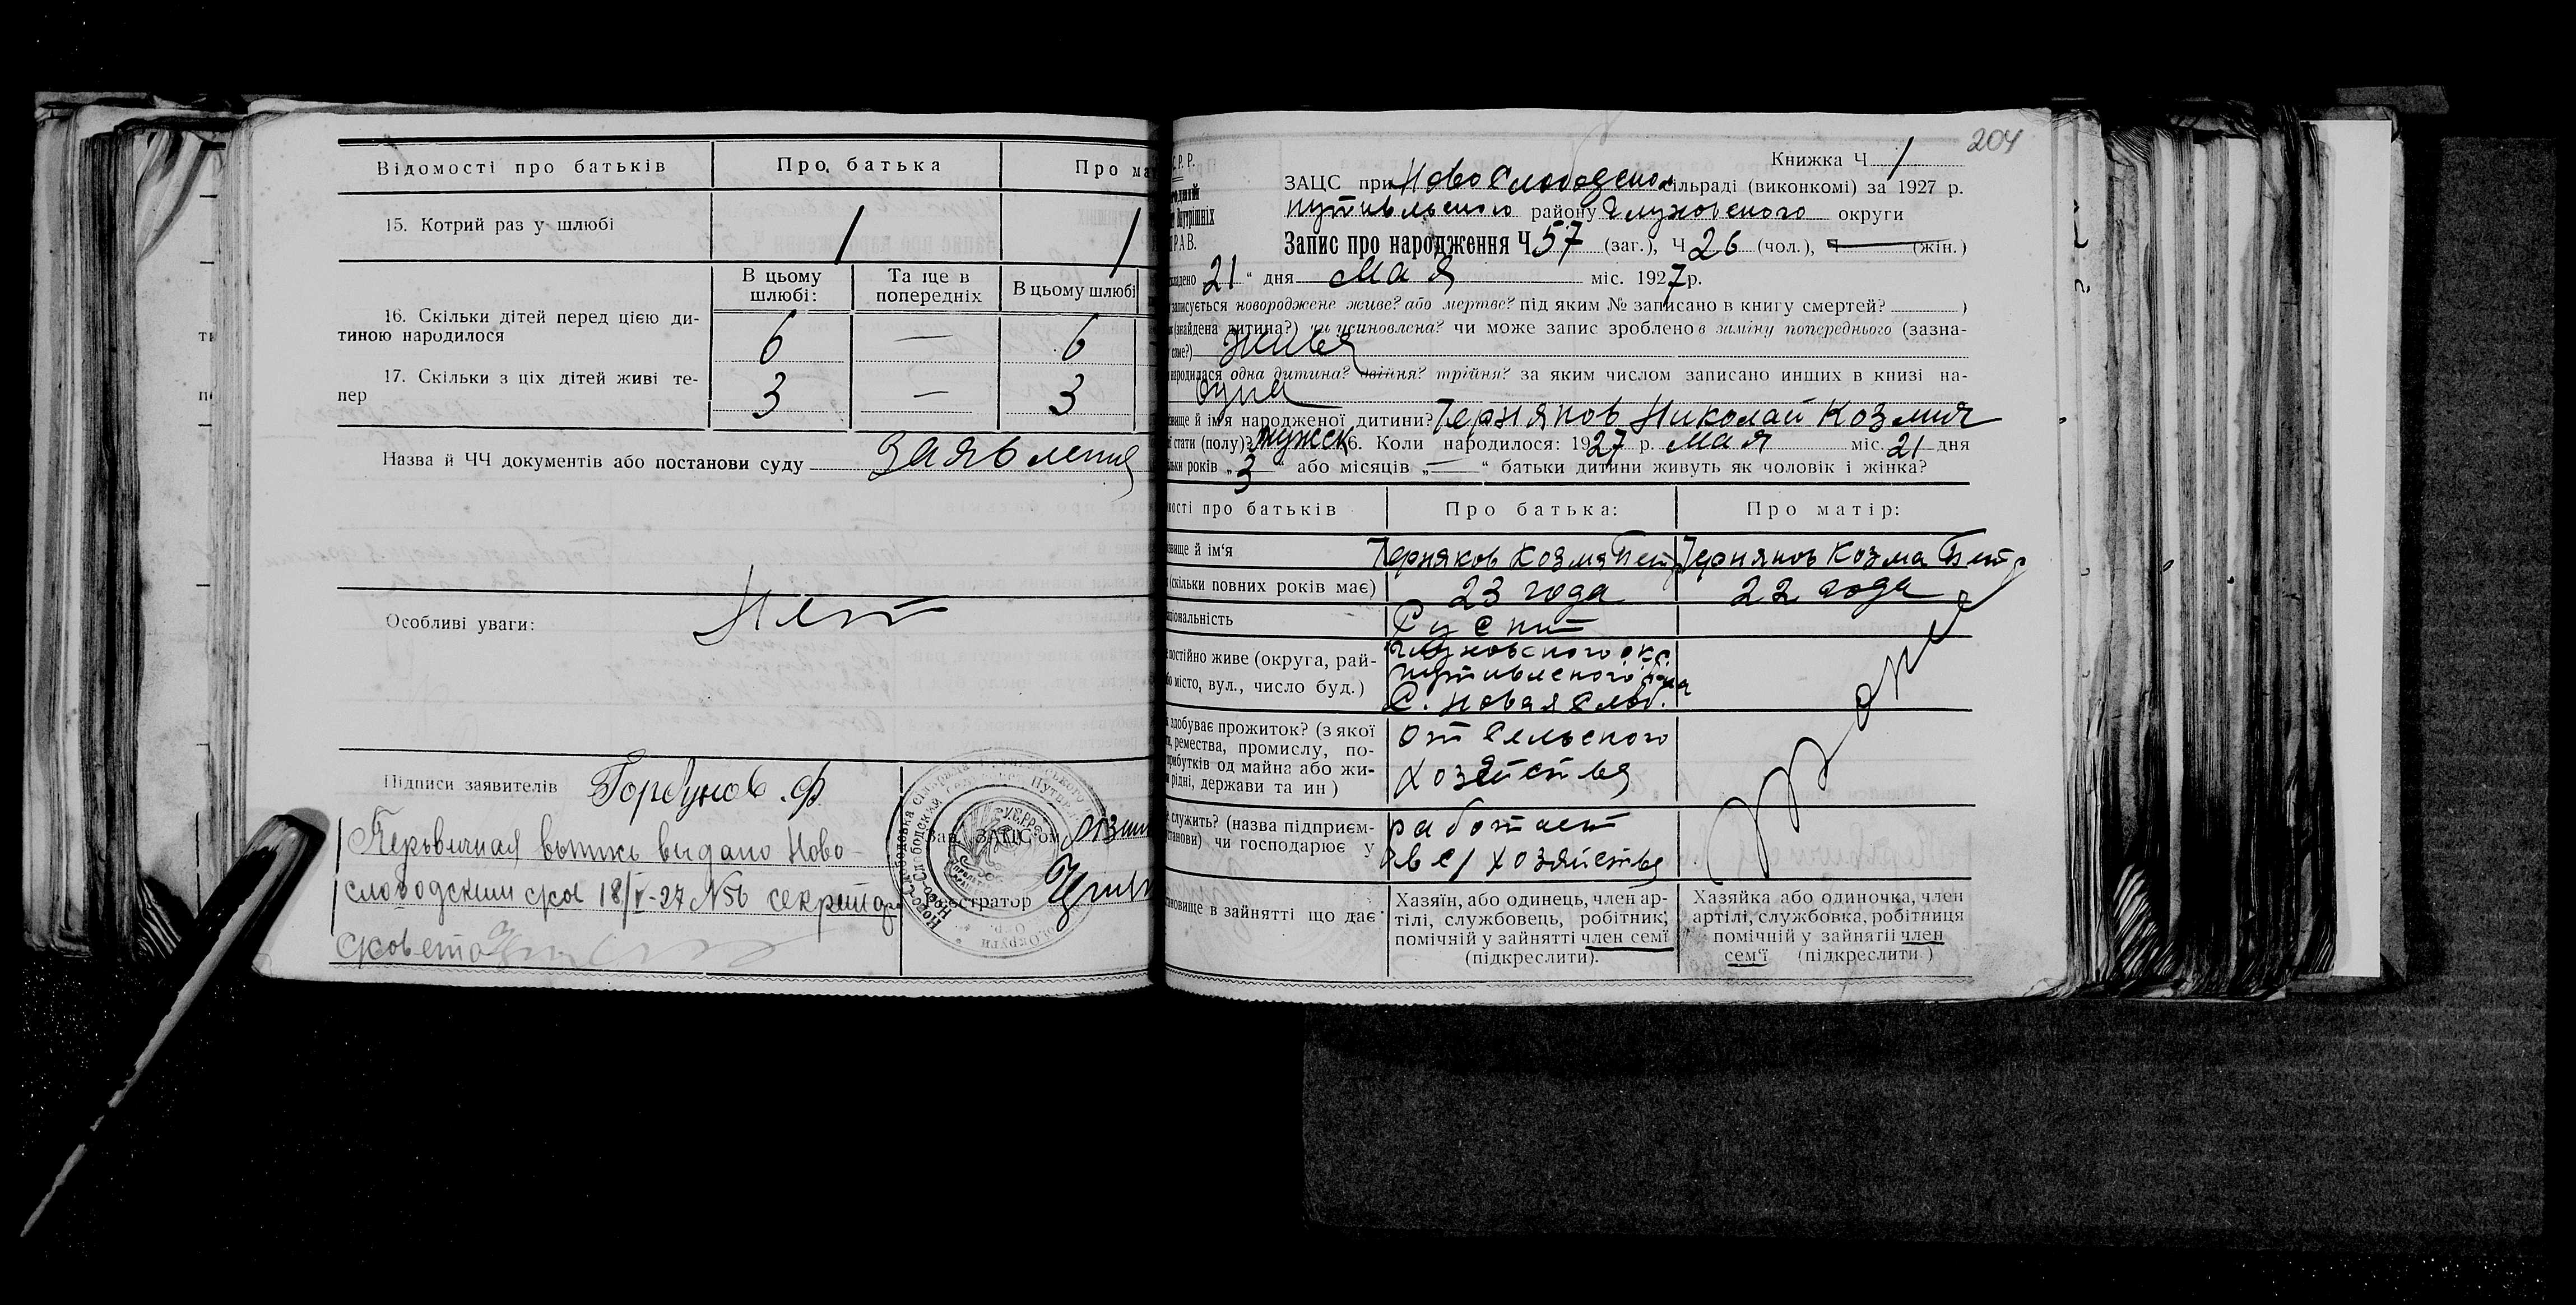 Відомості про батьків
Про батька
Про ма
15. Котрий раз у шлюбі
1
1
В цьому шлюбі:
Та ще в попередніх
В цьому шлюбі
16. Скільки дітей перед цією ди-
тиною народилося
6
—
6
17. Скільки з ціх дітей живі те-
пер
3
—
3
Назва й ЧЧ документів або постанови суду заявления
Особливі уваги:
Нет
Підписи заявителів Горбунов Ф.
Первичная выпись выдано Ново-
слободским с/сов 18/V-27 N 56 секретар
Зав. ЗАЦС'ом
Реєстратор
204
С.Р.Р.
Книжка Ч 1
ЗАЦС при Новослободском сільраді (виконкомі) за 1927 р.
Путивльского району Глуховского округи
ПРАВ.
Запис про народження Ч 57 (заг.), Ч 26 (чол.), Ч — (жін.)
21 " дня Мая міс. 1927 р.
записується новороджене живе? або мертве? під яким № записано в книгу смертей? )
(знайдена дитина?) чи усиновлена? чи може запис зроблено в заміну попереднього (зазна-
саме?) Живая
народилася одна дитина? двійня? трійня? за яким числом записано инших в книзі на-
одна
вище й ім'я народженої дитини? Черняков Николай Козмич
стати (полу)? мужск 6. Коли народилося: 1927 р. Мая міс. 21 дня
льки років „3“ або місяців „—“ батьки дитини живуть як чоловік і жінка?
мості про батьків
Про батька:
Про матір:
звище й ім'я
Черняков Козма Петр
Черняков Козма Петр
(скільки повних років має)
23 года
22 года
ціональність
Русский
постійно живе (округа, рай-
місто, вул., число буд.)
Глуховского окр.
Путивлского р-на
С. Новая Слоб.
здобуває прожиток? (з якої
ремества, промислу, по-
прибутків од майна або жи-
рідні, держави та ин)
от сельского
хозяйства
служить? (назва підприєм-
станови) чи господарює у
работает
в с/хозяйстве
новище в зайнятті що дає
Хазяїн, або одинець, член ар-
тілі, службовець, робітник,
помічній у зайнятті член семї
(підкреслити).
Хазяйка або одиночка, член
артілі, службовка, робітниця
помічній у зайнятіі член
сем'ї (підкреслити)